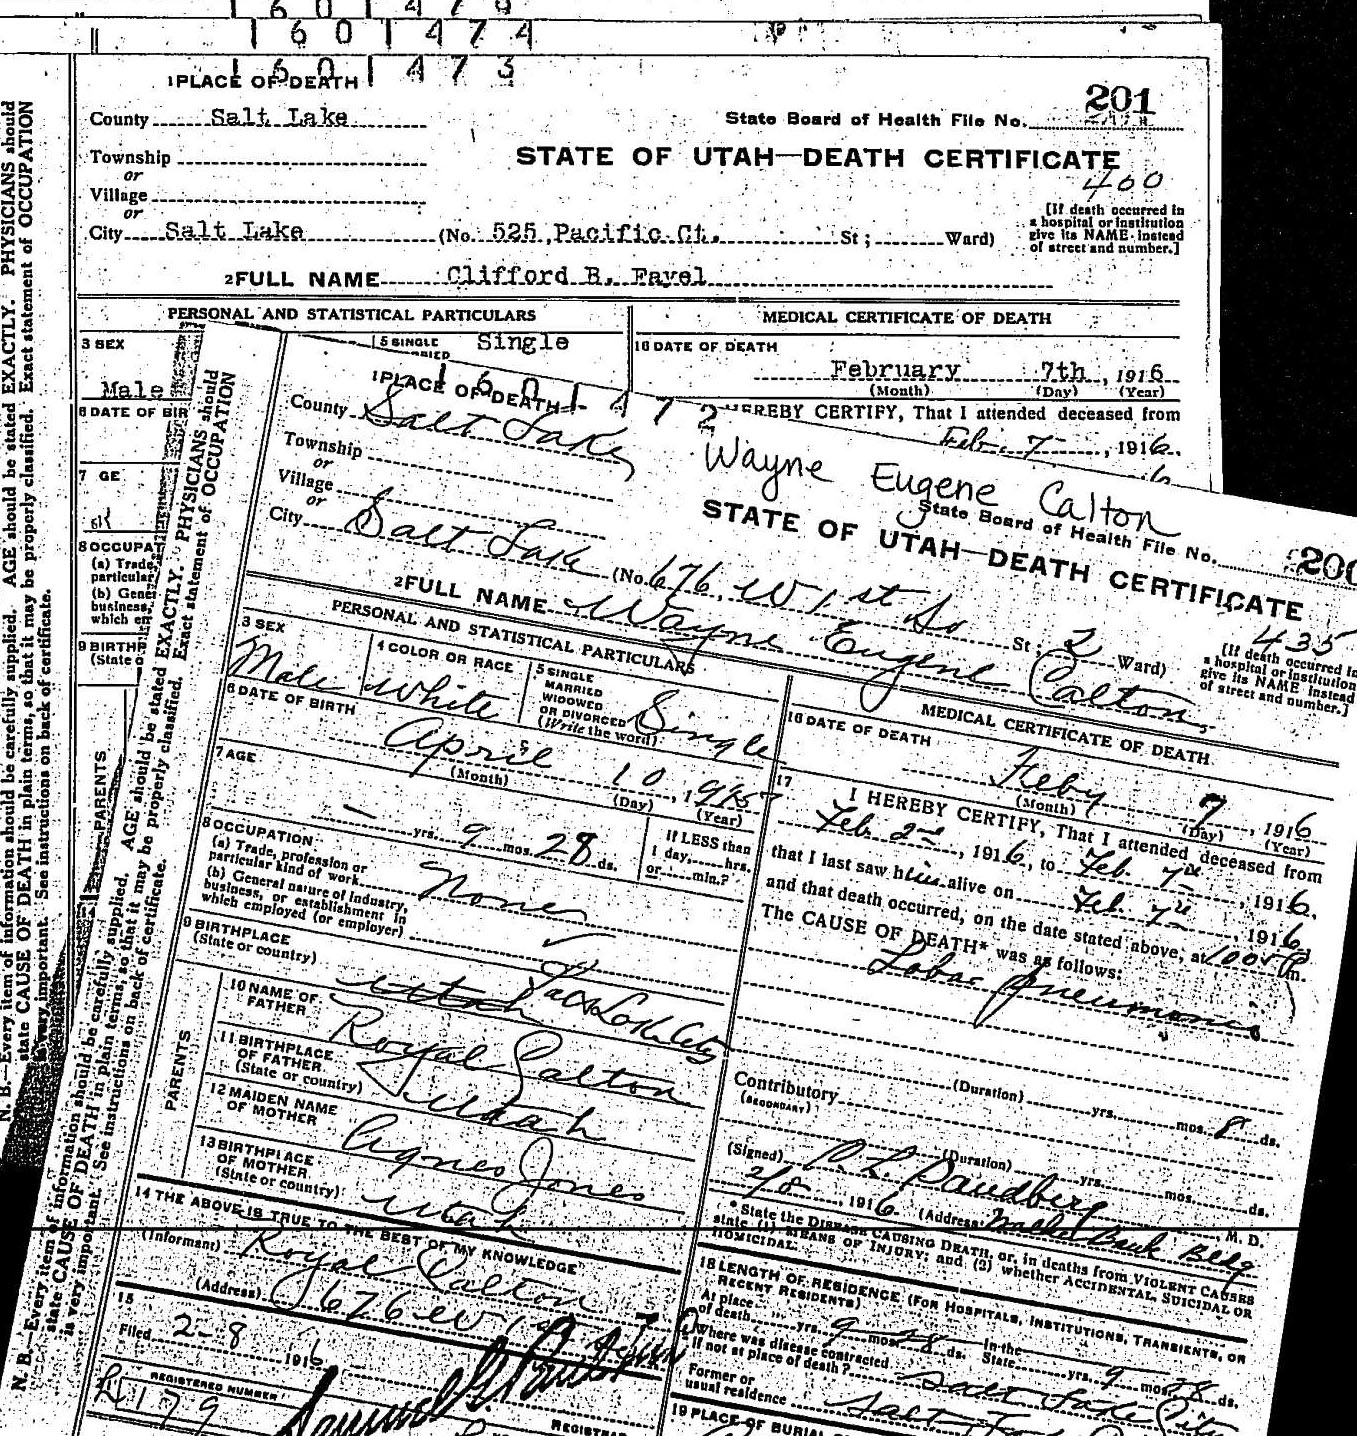 1601474
1601473
1 PLACE OF DEATH
201
County Salt Lake
State Board of Health File No.
Township
or
STATE OF UTAH—DEATH CERTIFICATE
400
Village
or
City Salt Lake (No. 525 Pacific Ct. St; Ward)
[If death occurred in
a hospital or institution
give its NAME instead
of street and number.]
2 FULL NAME Clifford B. Favel
PERSONAL AND STATISTICAL PARTICULARS
MEDICAL CERTIFICATE OF DEATH
3 SEX
Male
5 SINGLE
Single
16 DATE OF DEATH
February 7th, 1916
(Month) (Day) (Year)
HEREBY CERTIFY, That I attended deceased from
Feb. 7, 1916.
6 DATE OF BIR
7 GE
8 OCCUPAT
(a) Trade,
particular
(b) Gene
business,
which em
9 BIRTHP
(State o
PARENTS
N. B.—Every item of information should be carefully supplied. AGE should be stated EXACTLY. PHYSICIANS should
state CAUSE OF DEATH in plain terms, so that it may be properly classified. Exact statement of OCCUPATION
is very important. See instructions on back of certificate.
1601472
1 PLACE OF DEATH
County Salt Lake
Wayne Eugene Calton
Township
or
State Board of Health File No. 200
Village
or
STATE OF UTAH—DEATH CERTIFICATE
435
City Salt Lake (No. 676 W 1st So St; 2 Ward)
[If death occurred in
a hospital or institution
give its NAME instead
of street and number.]
2 FULL NAME Wayne Eugene Calton
PERSONAL AND STATISTICAL PARTICULARS
3 SEX
Male
4 COLOR OR RACE
White
5 SINGLE
MARRIED
WIDOWED
OR DIVORCED
(Write the word)
Single
6 DATE OF BIRTH
April 10, 1915
(Month) (Day) (Year)
7 AGE
— yrs. 9 mos. 28 ds.
If LESS than
1 day, hrs.
or min.?
8 OCCUPATION
(a) Trade, profession or
particular kind of work
None
(b) General nature of industry,
business, or establishment in
which employed (or employer)
9 BIRTHPLACE
(State or country)
Utah Salt Lake City
PARENTS
10 NAME OF
FATHER
Royal Calton
11 BIRTHPLACE
OF FATHER
(State or country)
Utah
12 MAIDEN NAME
OF MOTHER
Agnes Jones
13 BIRTHPLACE
OF MOTHER
(State or country)
Utah
14 THE ABOVE IS TRUE TO THE BEST OF MY KNOWLEDGE
(Informant) Royal Calton
(Address) 676 W 1st
15
Filed 2-8 1916
REGISTERED NUMBER
179
REGISTRAR
MEDICAL CERTIFICATE OF DEATH
16 DATE OF DEATH
Feby 7, 1916
(Month) (Day) (Year)
17
I HEREBY CERTIFY, That I attended deceased from
Feb. 2nd, 1916, to Feb. 7th, 1916,
that I last saw him alive on Feb. 7th, 1916,
and that death occurred, on the date stated above, at m.
The CAUSE OF DEATH* was as follows:
Lobar Pneumonia
(Duration) yrs. mos. 8 ds.
Contributory
(SECONDARY)
(Duration) yrs. mos. ds.
(Signed) M. D.
2/8, 1916 (Address) Bank Bldg
* State the DISEASE CAUSING DEATH, or, in deaths from VIOLENT CAUSES
state (1) MEANS OF INJURY; and (2) whether ACCIDENTAL, SUICIDAL OR
HOMICIDAL.
18 LENGTH OF RESIDENCE (FOR HOSPITALS, INSTITUTIONS, TRANSIENTS, OR
RECENT RESIDENTS)
At place
of death yrs. 9 mos. 28 ds. In the State yrs. 9 mos. 28 ds.
Where was disease contracted
if not at place of death?
Salt Lake City
Former or
usual residence
Salt
19 PLACE OF BURIAL
N. B.—Every item of information should be carefully supplied. AGE should be stated EXACTLY. PHYSICIANS should
state CAUSE OF DEATH in plain terms, so that it may be properly classified. Exact statement of OCCUPATION
is very important. See instructions on back of certificate.